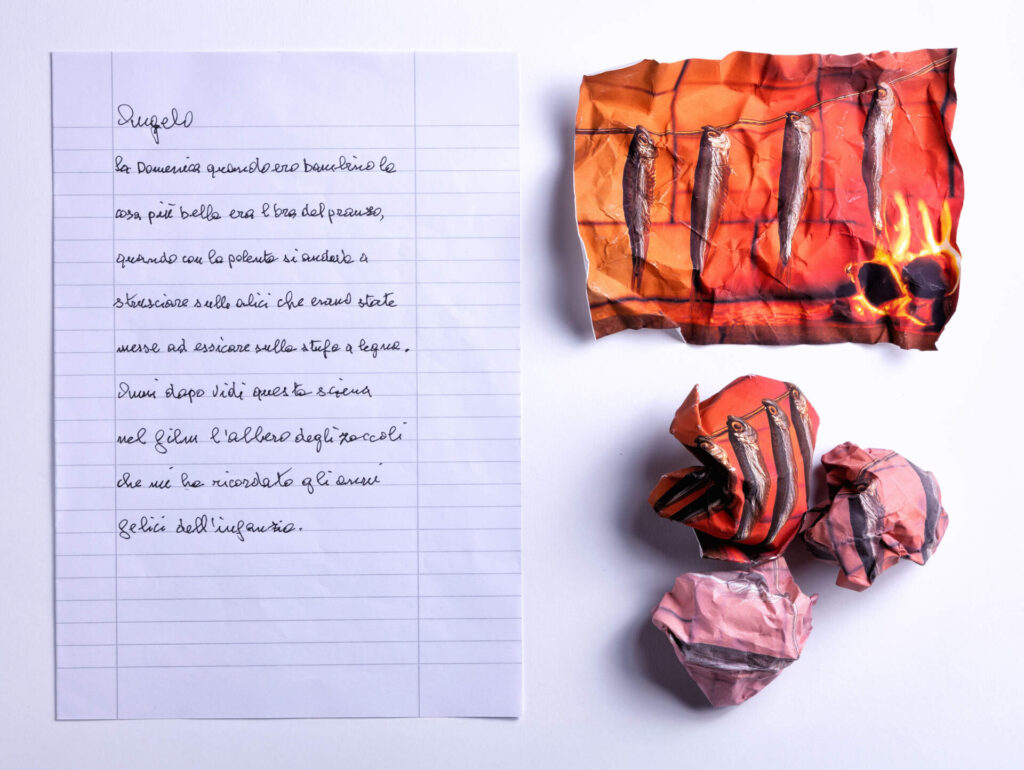 Angelo
La Domenica quando ero bambino la
cosa più bella era l'ora del pranzo,
quando con la polenta si andava a
strusciare sulle alici che erano state
messe ad essicare sulla stufa a legna.
Anni dopo vidi questa sciena
nel film l'albero degli zoccoli
che mi ha ricordato gli anni
felici dell'infanzia.